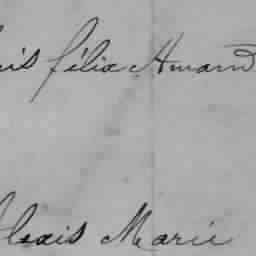 is félix Amand
lexis Marie